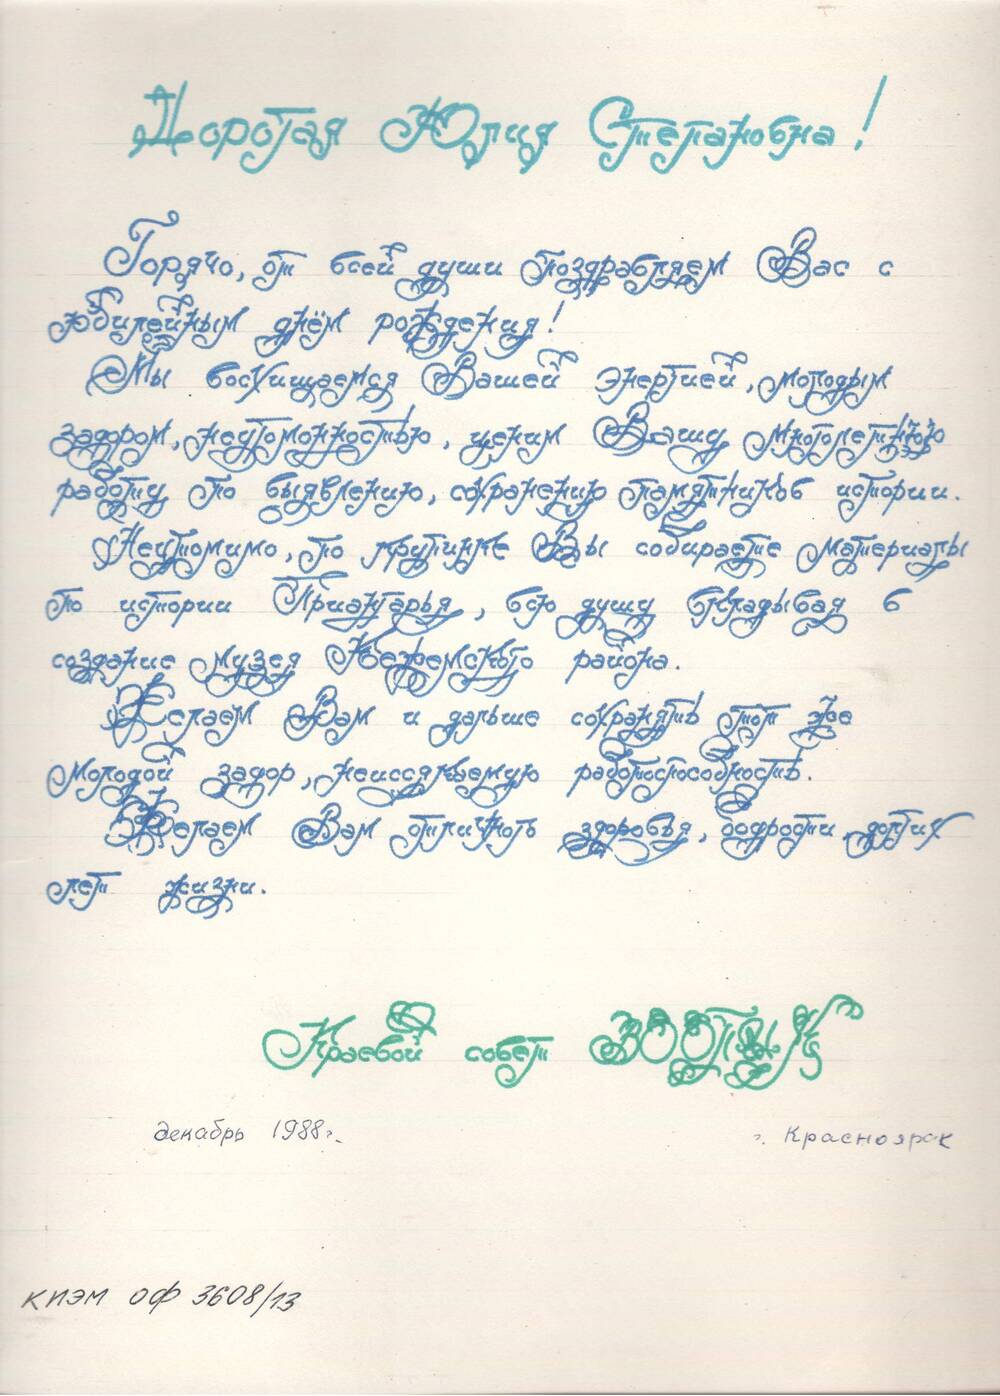 Дорогая Юлия Степановна!
Горячо, от всей души поздравляем Вас с
юбилейным днём рождения!
Мы восхищаемся Вашей энергией, молодым
задором, неутомонностью, ценим Вашу многолетнюю
работу по выявлению, сохранению памятников истории.
Неутомимо, по крупинке Вы собираете материалы
по истории Приангарья, всю душу вкладывая в
создание музея Кежемского района.
Желаем Вам и дальше сохранять тот же
молодой задор, неиссякаемую работоспособность.
Желаем Вам отличного здоровья, бодрости, долгих
лет жизни.
Краевой совет ВООПИиК
декабрь 1988г. г. Красноярск
КИЭМ ОФ 3608/13